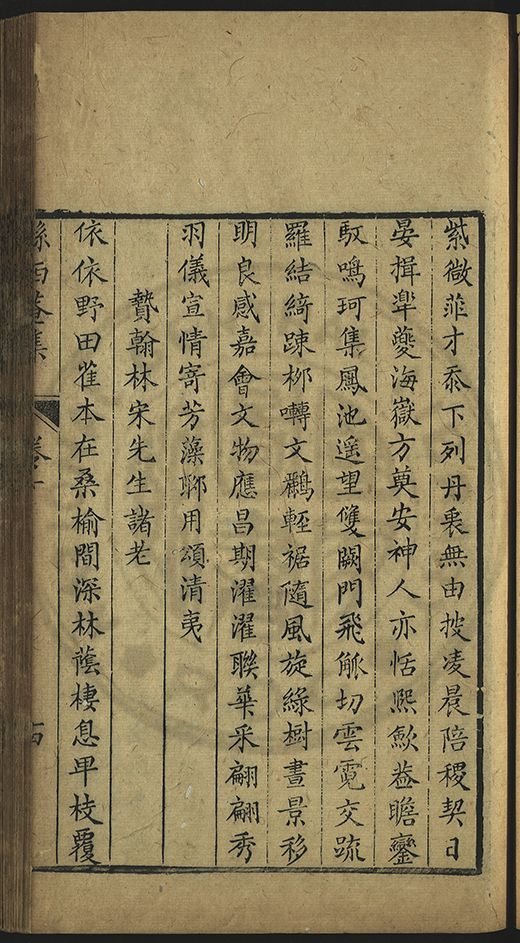 紫微菲才忝下列丹裏無由披凌晨陪稷契日
晏揖臯夔海嶽方莫安神人亦恬熙歘茲瞻鑾
馭鳴珂集鳳池遥望雙闕門飛觚切雲霓交疏
羅結綺踈栁囀文鸝輊裾隨風旋綠樹晝景移
明良感嘉會文物應昌期濯濯聯華采翩翩秀
羽儀宣情寄芳藻聊用頌清夷
贄翰林宋先生諸老
依依野田雀本在桑榆間深林䕃棲息甲枝覆
孫西菴集
卷一